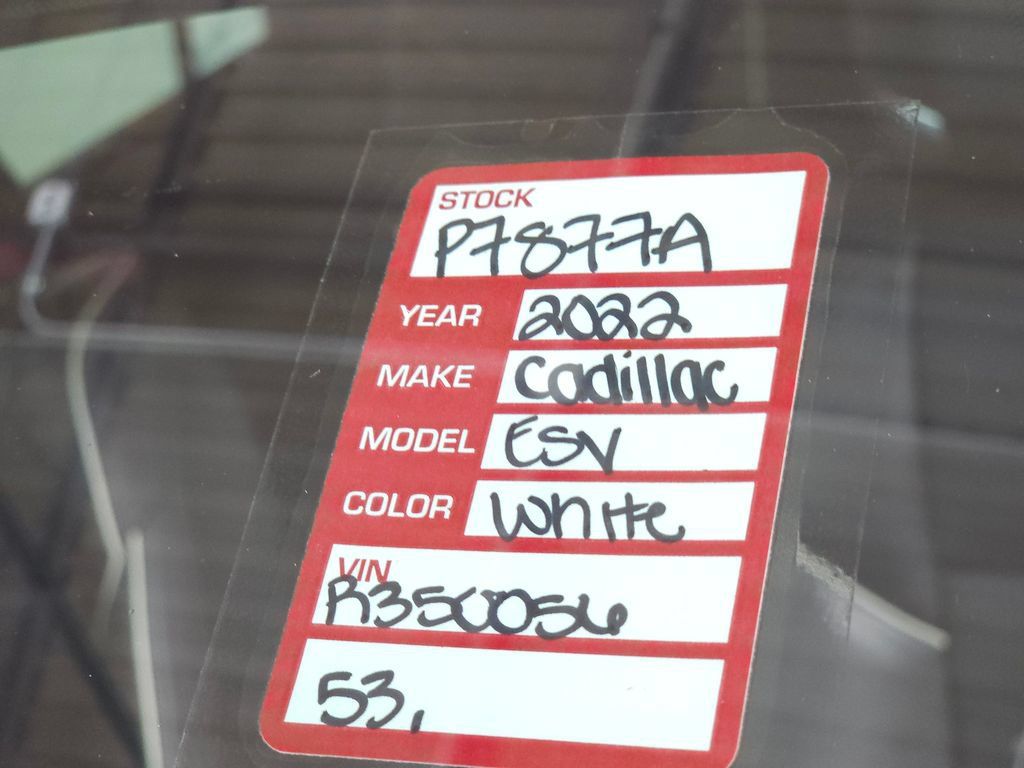 STOCK
P7877A
YEAR 2022
MAKE Cadillac
MODEL ESV
COLOR White
VIN
R350056
53,